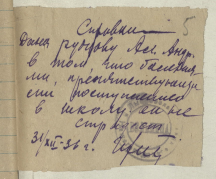 Справка 5
Дана гудкову Ал. Андр.
в том, что болезня
ми, препятствующи
ми поступлению
в школу он не
страдает
31/XII-36 г.